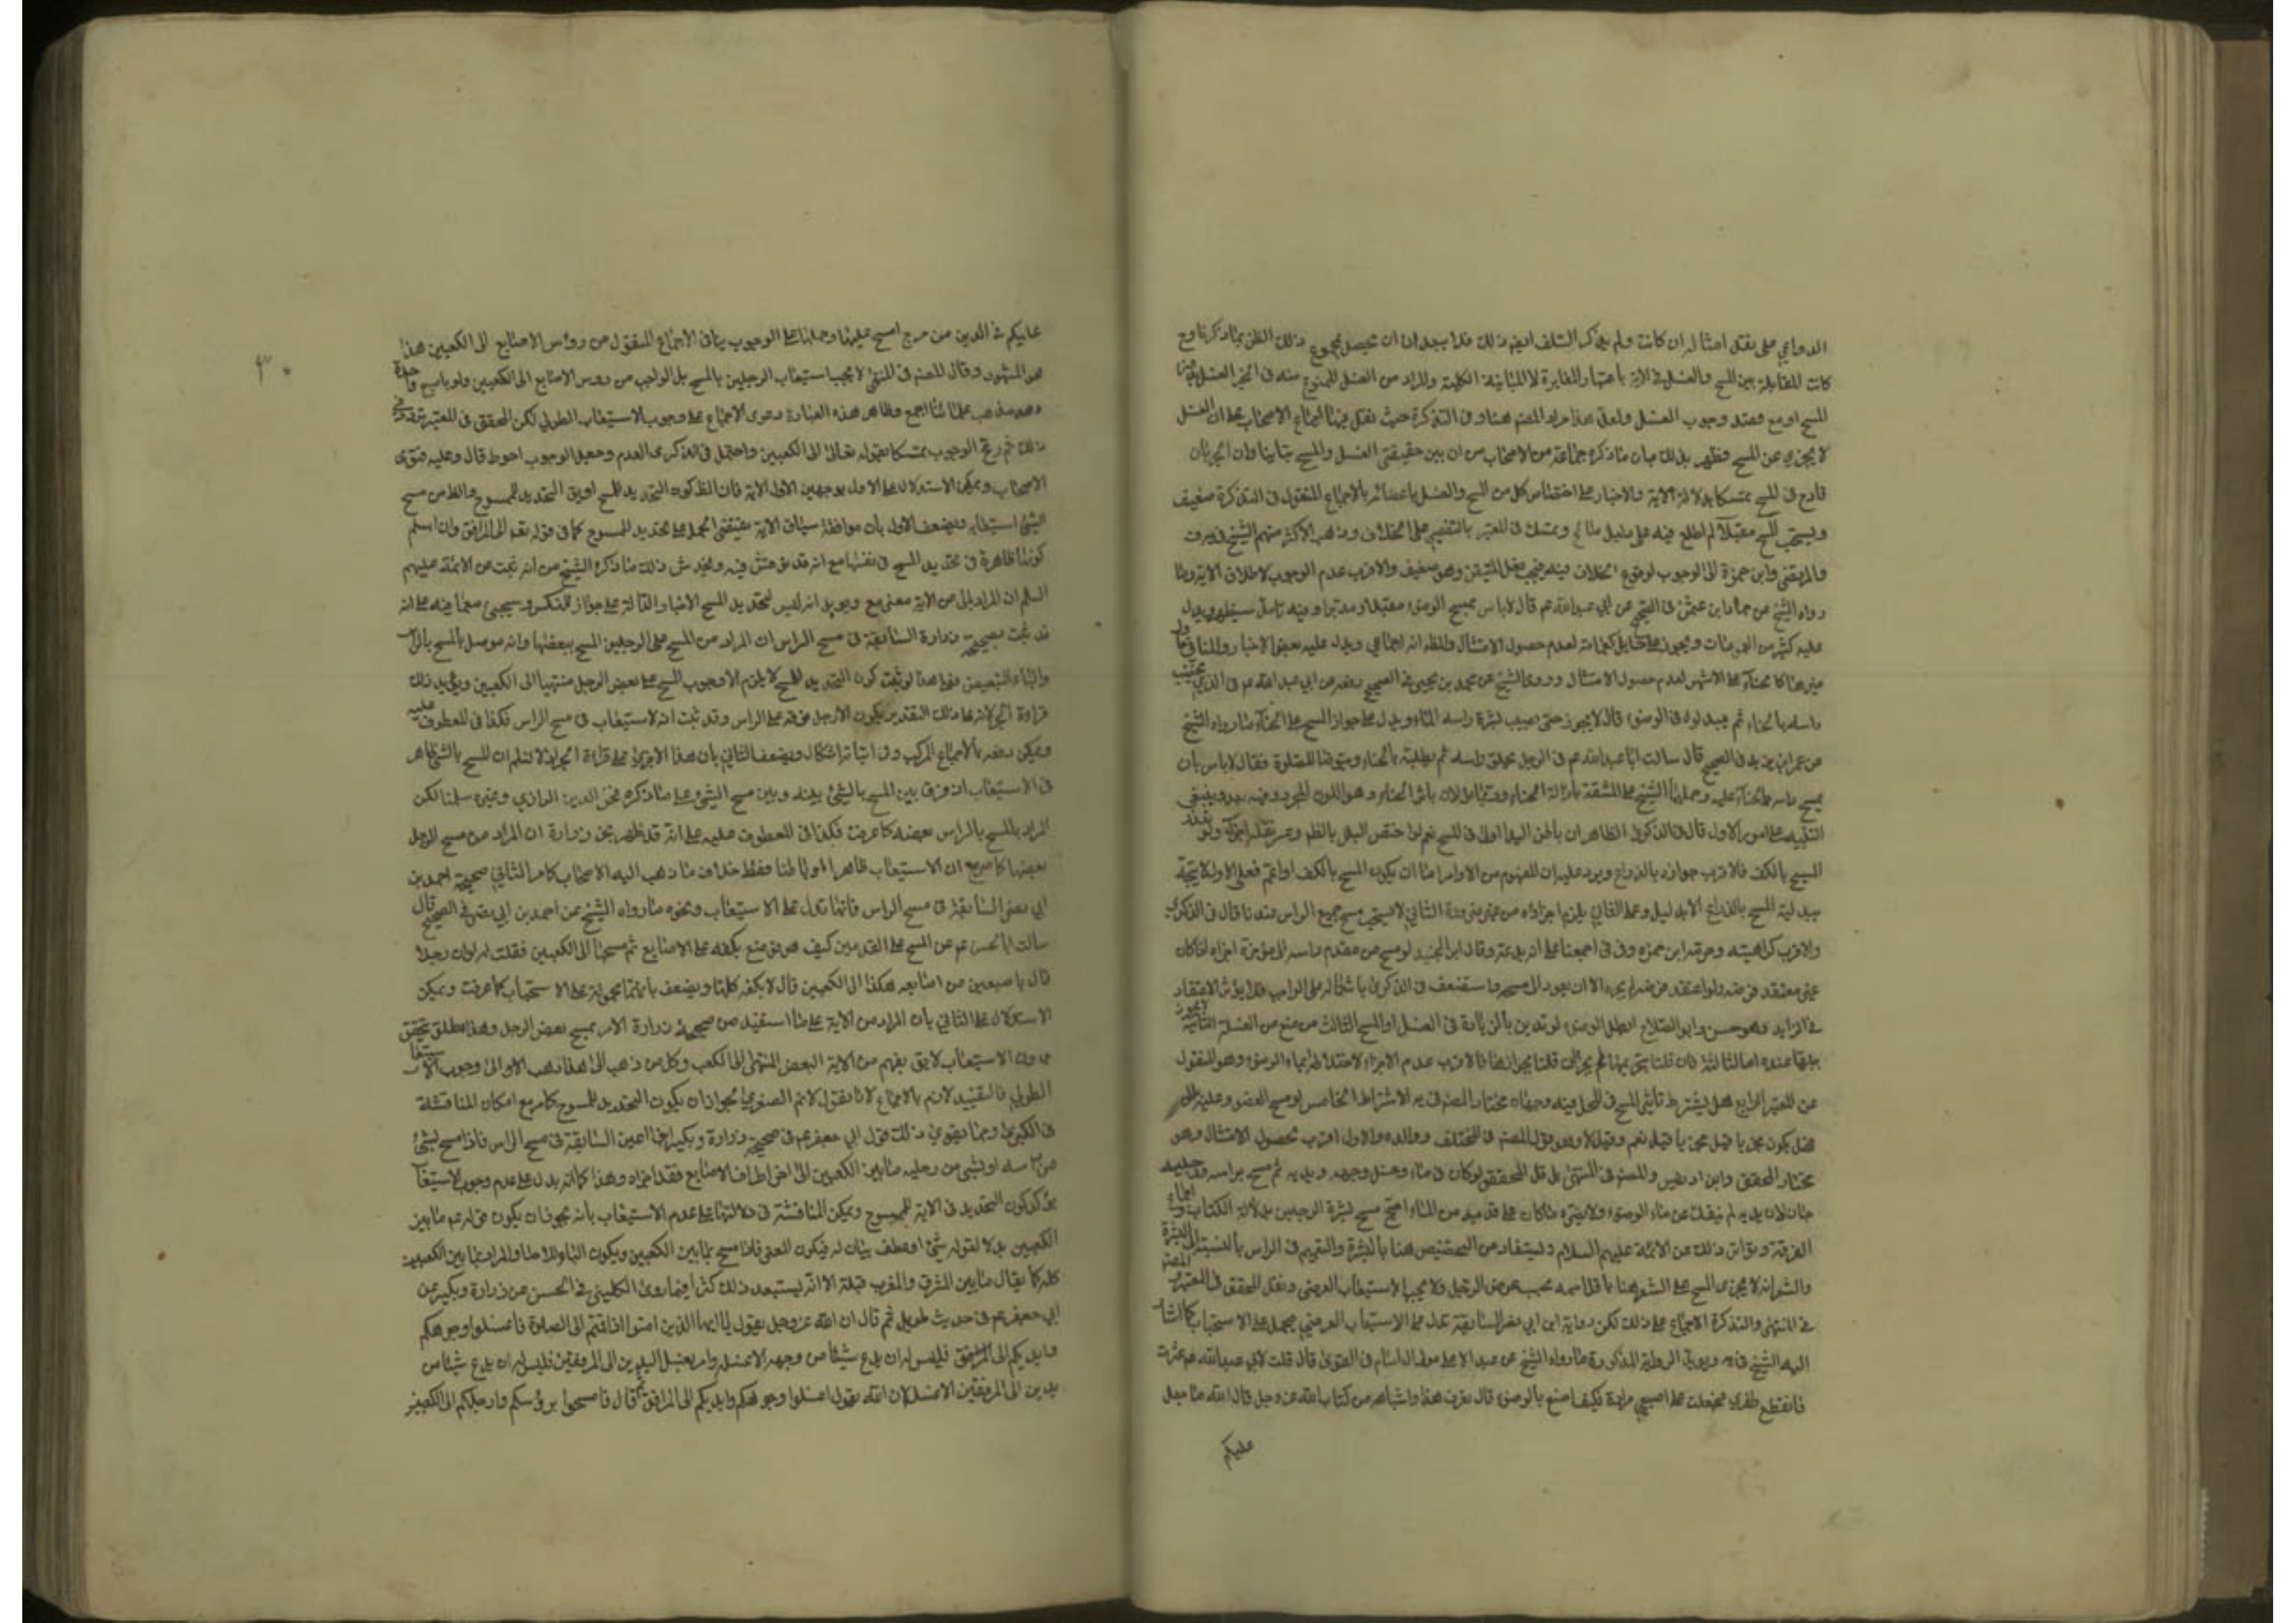 الدواعي على نقل امثاله ان كانت ولم ينكر السلف ايضا ذلك فلا يبعد ان يحصل بمجموع ذلك الظن بما ذكرنا وح
كانت المقابلة بين المسح والغسل في الاية باعتبار المغايرة لا المباينة الكلية والمراد من الغسل الممنوع منه في الخبر الغسل
المسح او مع قصد وجوب الغسل ولعل هذا مراد المصنف هنا وفي التذكرة حيث نقل فيها اجماع الاصحاب على ان الغسل
لا يجزي عن المسح فظهر بذلك ان ما ذكره جماعة من الاصحاب من ان بين حقيقتي الغسل والمسح تباينا وان الجريان
قادح في المسح تمسكا بدلالة الاية والاخبار على اختصاص كل من المسح والغسل باعضائه بالاجماع المنقول في التذكرة ضعيف
ويستحب المسح مقبلا لم اطلع فيه على دليل صالح وتمسك في المعتبر بالتفصي عن الخلاف وذهب الاكثر منهم الشيخ في
والمرتضى وابن حمزة الى الوجوب لوقوع الخلاف فيه فيجب فعل المتيقن وهو ضعيف والاقرب عدم الوجوب لاطلاق الاية وما
رواه الشيخ عن حماد بن عثمن في الصحيح عن ابي عبد الله عم قال لا باس بمسح الوضوء مقبلا ومدبرا وفيه تامل سيظهر ويدل
عليه كثير من العمومات ولا يجوز على حايل كعمامة لعدم حصول الامتثال والظ انه اجماعي ويدل عليه بعض الاخبار
غيرها كالحناء على الاشهر لعدم حصول الامتثال وروى الشيخ عن محمد بن يحيى في الصحيح رفعه عن ابي عبد الله عم في الذي يخضب
راسه بالحناء ثم يبدو له في الوضوء قال لا يجوز حتى يصيب بشرة راسه الماء ويدل على جواز المسح على الحناء ما رواه الشيخ
عن عمر بن يزيد في الصحيح قال سالت ابا عبد الله عم في الرجل يحلق راسه ثم يطليه بالحناء ويتوضا للصلوة فقال لا باس بان
يمسح راسه والحناء عليه وحملها الشيخ على المشقة بازالة الحناء وقد يؤولان باثر الحناء وهو اللون المجرد وفيه بعد وينبغي
التنبيه على امور الاول قال في الذكرى الظاهر ان باطن اليد اولى في المسح نعم لو اختص البلل بالظهر وعسر نقله اجزأ ولو تعذر
المسح بالكف فالاقرب جوازه بالذراع ويرد عليه ان المفهوم من الاوامر اما ان يكون المسح بالكف او اعم فعلى الاول لا يتجه
بدلية المسح بالذراع الا بدليل وعلى الثاني يلزم اجزاؤه من غير ضرورة الثاني لا يستحب مسح جميع الراس عندنا قال في الذكرى
والاقرب كراهيته وحرمه ابن حمزه وفي ف اجمعنا على انه بدعة وقال ابن الجنيد لو مسح من مقدم راسه الى مؤخره اجزأه اذا كان
غير معتقد فرضه ولو اعتقد فرضه لم يجزه الا ان يعود الى مسحه واستضعف في الذكرى باشتماله على الواجب فلا يؤثر الاعتقاد
في الزايد وهو حسن وابو الصلاح ابطل الوضوء لو تدين بالزيادة في الغسل او المسح الثالث من منع من الغسلة الثانية
يبطلها عنده اما الثالثة فان قلنا بتحريمها لم يجز وان قلنا بجوازها فالاقرب عدم الاجزاء لاعتقاد انه ماء الوضوء وهو المنقول
عن المعتبر الرابع هل يشترط تاثير المسح في المحل فيه وجهان مختار المصنف في يه الاشتراط الخامس لو مسح العضو وعليه بلل
هل يكون مجزيا قيل نعم وقيل لا وهو قول المصنف في المختلف ووالده والاول اقرب لحصول الامتثال وهو
مختار المحقق وابن ادريس والمصنف في المنتهى بل قال المحقق لو كان في ماء وغسل وجهه ويديه ثم مسح براسه ورجليه
جاز لان يديه لم تنفك عن ماء الوضوء ولا يضره ما كان على قدميه من الماء ويجب مسح بشرة الرجلين بدلالة الكتاب واجماع
الفرقة وتواتر ذلك عن الائمة عليهم السلام ويستفاد من التخصيص هنا بالبشرة والتعميم في الراس بالنسبة الى البشرة
والشعر انه لا يجزي المسح على الشعر هنا باقل اسمه بحسب عرض الرجل ولا يجب الاستيعاب العرضي ونقل المحقق في المعتبر والمصنف
في المنتهى والتذكرة الاجماع على ذلك لكن رواية ابن ابي نصر السابقة تدل على الاستيعاب العرضي فيحمل على الاستحباب كما اشار
اليه الشيخ في يه ويؤيد الرواية المذكورة ما رواه الشيخ عن عبد الاعلى مولى ال سام في القوي قال قلت لابي عبد الله عم عثرت
فانقطع ظفري فجعلت على اصبعي مرارة فكيف اصنع بالوضوء قال يعرف هذا واشباهه من كتاب الله عز وجل قال الله ما جعل
عليكم
٣٠
عليكم في الدين من حرج امسح عليها وحملها على الوجوب ينافي الاجماع المنقول من رؤس الاصابع الى الكعبين هذا
هو المشهور وقال المصنف في المنتهى لا يجب استيعاب الرجلين بالمسح بل الواجب من رؤس الاصابع الى الكعبين ولو باصبع واحدة
وهو مذهب علمائنا اجمع وظاهر هذه العبارة دعوى الاجماع على وجوب الاستيعاب الطولي لكن المحقق في المعتبر تردد في
ذلك ثم رجح الوجوب تمسكا بقوله تعالى الى الكعبين واحتمل في الذكرى العدم وجعل الوجوب احوط قال وعليه فتوى
الاصحاب ويمكن الاستدلال على الاول بوجهين الاول الاية فان الظ كون التحديد للمسح او بق التحديد للممسوح والظ من مسح
الشئ استيعابه ويضعف الاول بان موافقة سياق الاية يقتضي الحمل على تحديد الممسوح كما في قوله تعم الى المرافق وان اسلم
كونها ظاهرة في تحديد المسح في نفسها مع انه قد نوقش فيه ويخدش ذلك ما ذكره الشيخ من انه ثبت عن الائمة عليهم
السلم ان المراد بالى من الاية معنى مع ويؤيد انه ليس لتحديد المسح الاخبار الدالة على جواز النكس وسيجئ مع ما فيه على انه
قد ثبت بصحيحة زرارة السابقة في مسح الراس ان المراد من المسح على الرجلين المسح ببعضها وانه موصل بالمسح بالراس
والباء للتبعيض فعلى هذا لو ثبت كون التحديد للمسح لا يلزم الا وجوب المسح على بعض الرجل منتهيا الى الكعبين ويؤيد ذلك
قراءة الجر لانه على ذلك التقدير يكون الارجل معطوفة على الراس وقد ثبت انه لا استيعاب في مسح الراس فكذا في المعطوف عليه
ويمكن دفعه بالاجماع المركب وفي اثباته اشكال ويضعف الثاني بان هذا لا يجري على قراءة الجر اذ لا نسلم ان المسح بالشئ ظاهر
في الاستيعاب اذ فرق بين المسح بالشئ وبين مسح الشئ على ما ذكره فخر الدين الرازي وغيره سلمنا لكن
المراد بالمسح بالراس بعضه كما عرفت فكذا في المعطوف عليه على انه قد ظهر بخبر زرارة ان المراد من مسح الرجل
بعضها كما مر مع ان الاستيعاب ظاهرا وباطنا فقط خلاف ما ذهب اليه الاصحاب كما مر الثاني صحيحة احمد بن
ابي نصر السابقة في مسح الراس فانها تدل على الاستيعاب ونحوه ما رواه الشيخ عن احمد بن ابي نصر في الصحيح قال
سالت ابا الحسن عم عن المسح على القدمين كيف هو فوضع بكفه على الاصابع ثم مسحها الى الكعبين فقلت له لو ان رجلا
قال باصبعين من اصابعه هكذا الى الكعبين قال لا بكفه كلها ويضعف بانها محمولة على الاستحباب كما عرفت ويمكن
الاستدلال على الثاني بان المراد من الاية على ما استفيد من صحيحة زرارة الامر بمسح بعض الرجل وهذا مطلق يتحقق
بدون الاستيعاب لا يق يفهم من الاية البعض المنتهى الى الكعب وكل من ذهب الى هذا ذهب الى وجوب الاستيعاب
الطولي فالتقييد لازم بالاجماع لانا نقول لانم الصغرى لجواز ان يكون التحديد للممسوح كما مر مع امكان المناقشة
في الكبرى ومما يقوي ذلك قول ابي جعفر عم في صحيحة زرارة وبكير ابني اعين السابقة في مسح الراس فاذا مسح بشئ
من راسه او بشئ من رجليه ما بين الكعبين الى اطراف الاصابع فقد اجزاه وهذا كما انه يدل على عدم وجوب الاستيعاب
يؤكد كون التحديد في الاية للممسوح ويمكن المناقشة في دلالتها على عدم الاستيعاب بانه يجوز ان يكون قوله عم ما بين
الكعبين بدلا لقوله شئ او عطف بيان له فيكون المعنى فاذا مسح بما بين الكعبين ويكون الباء للالصاق والمراد بما بين الكعبين
كله كما يقال ما بين المشرق والمغرب قبلة الا انه يستبعد ذلك كثيرا فيما روى الكليني في الحسن عن زرارة وبكير عن
ابي جعفر عم في حديث طويل ثم قال ان الله عز وجل يقول يا ايها الذين امنوا اذا قمتم الى الصلوة فاغسلوا وجوهكم
وايديكم الى المرافق فليس له ان يدع شيئا من وجهه الا غسله وامر بغسل اليدين الى المرفقين فليس له ان يدع شيئا من
يديه الى المرفقين الا غسله لان الله يقول اغسلوا وجوهكم وايديكم الى المرافق ثم قال فامسحوا برؤسكم وارجلكم الى الكعبين